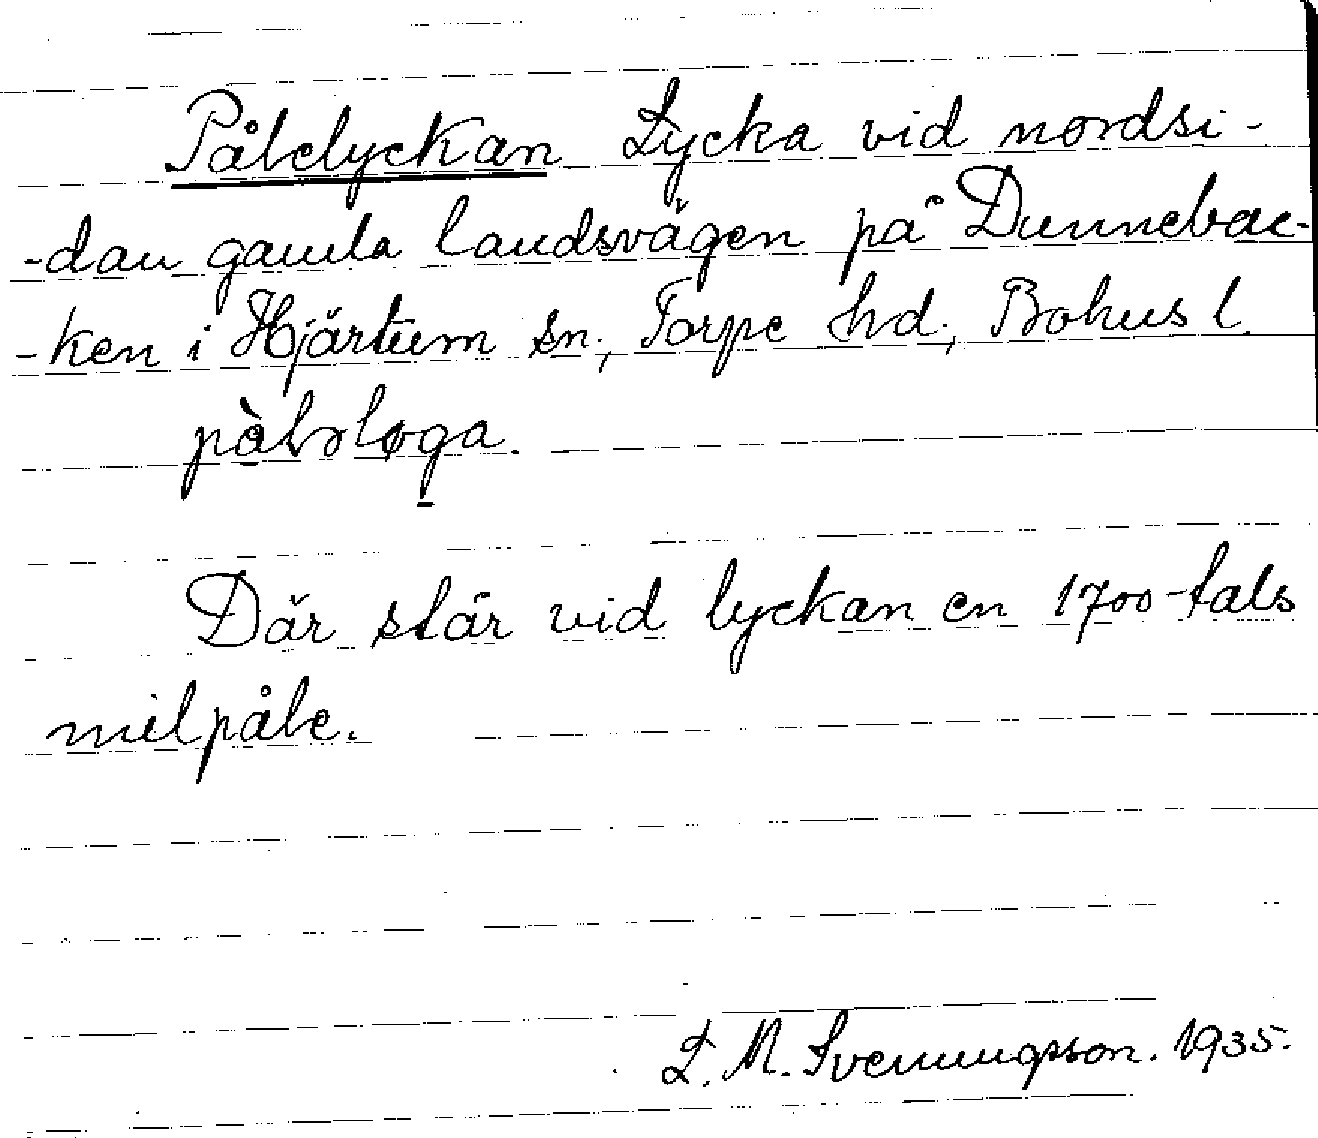 Pålelyckan Lycka vid nordsi-
-dan gamla landsvägen på Dunnebac-
-ken i Hjärtum sn, Torpe hd, Bohus l.
pàləløga.
Där står vid lyckan en 1700-tals
milpåle.
L. M. Svenungsson. 1935.